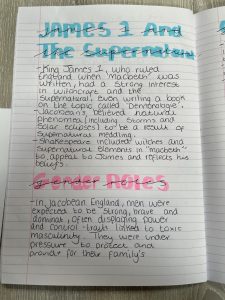 James 1 And
The Supernatural
- King James 1, who ruled
England when 'Macbeth' was
written, had a strong interest
in witchcraft and the
supernatural. Even writing a book
on the topic called 'Demonologie'.
- Jacobean's believed natural
phenomena (including storms and
solar eclipses) to be a result of
supernatural meddling.
- Shakespeare included witches and
supernatural elements in 'Macbeth'
to appeal to James and reflects his
beliefs.
Gender Roles
- In Jacobean England, men were
expected to be strong, brave and
dominant, often displaying power
and control - traits linked to toxic
masculinity. They were under
pressure to protect and
provide for their family's